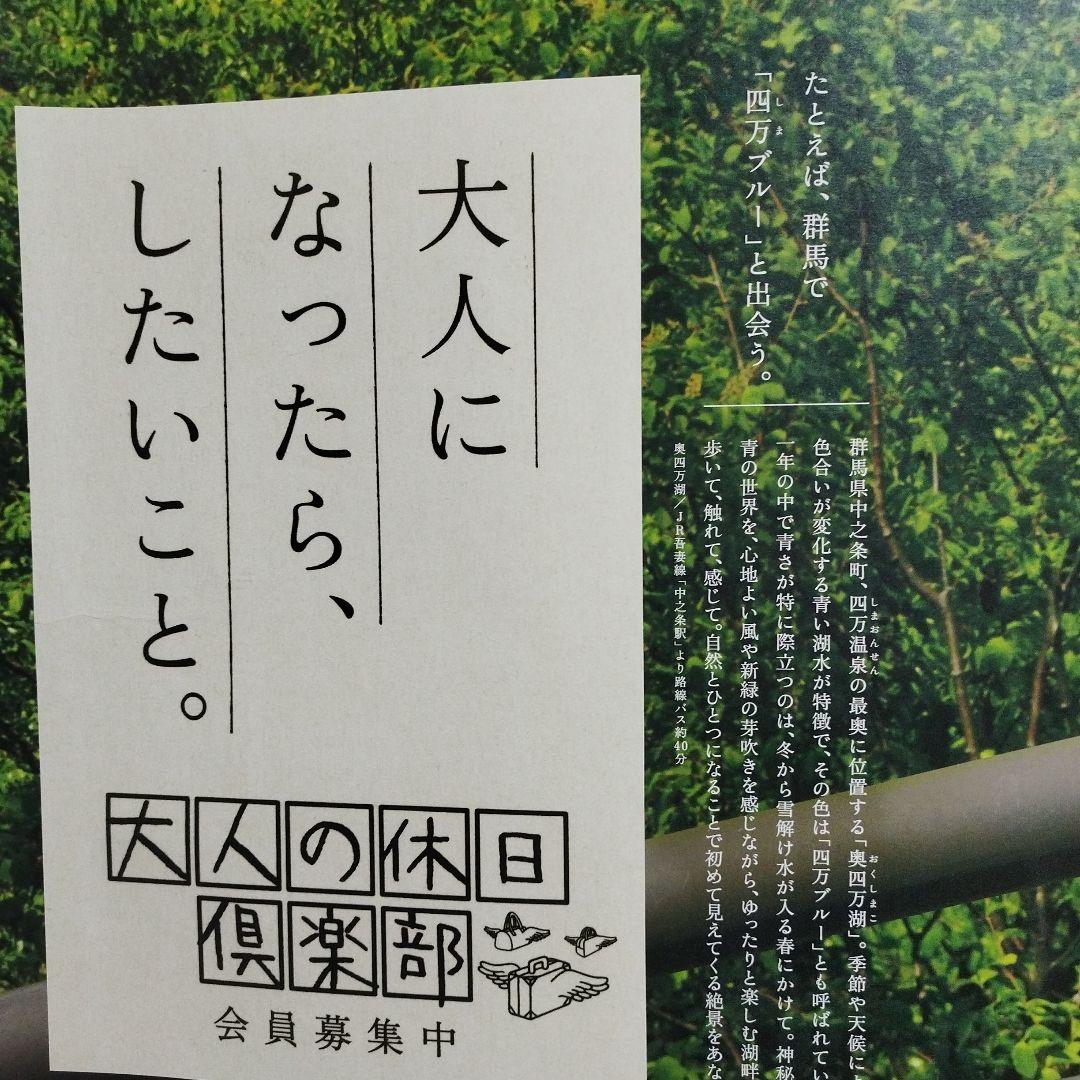 大人に
なったら、
したいこと。
大人の休日
倶楽部
会員募集中
たとえば、群馬で
「四万ブルー」と出会う。
しま
群馬県中之条町、四万温泉の最奥に位置する「奥四万湖」。季節や天候によ
しまおんせん
おくしまこ
色合いが変化する青い湖水が特徴で、その色は「四万ブルー」とも呼ばれてい
一年の中で青さが特に際立つのは、冬から雪解け水が入る春にかけて。神秘
青の世界を、心地よい風や新緑の芽吹きを感じながら、ゆったりと楽しむ湖畔
歩いて、触れて、感じて。自然とひとつになることで初めて見えてくる絶景をあな
奥四万湖／JR吾妻線「中之条駅」より路線バス約40分